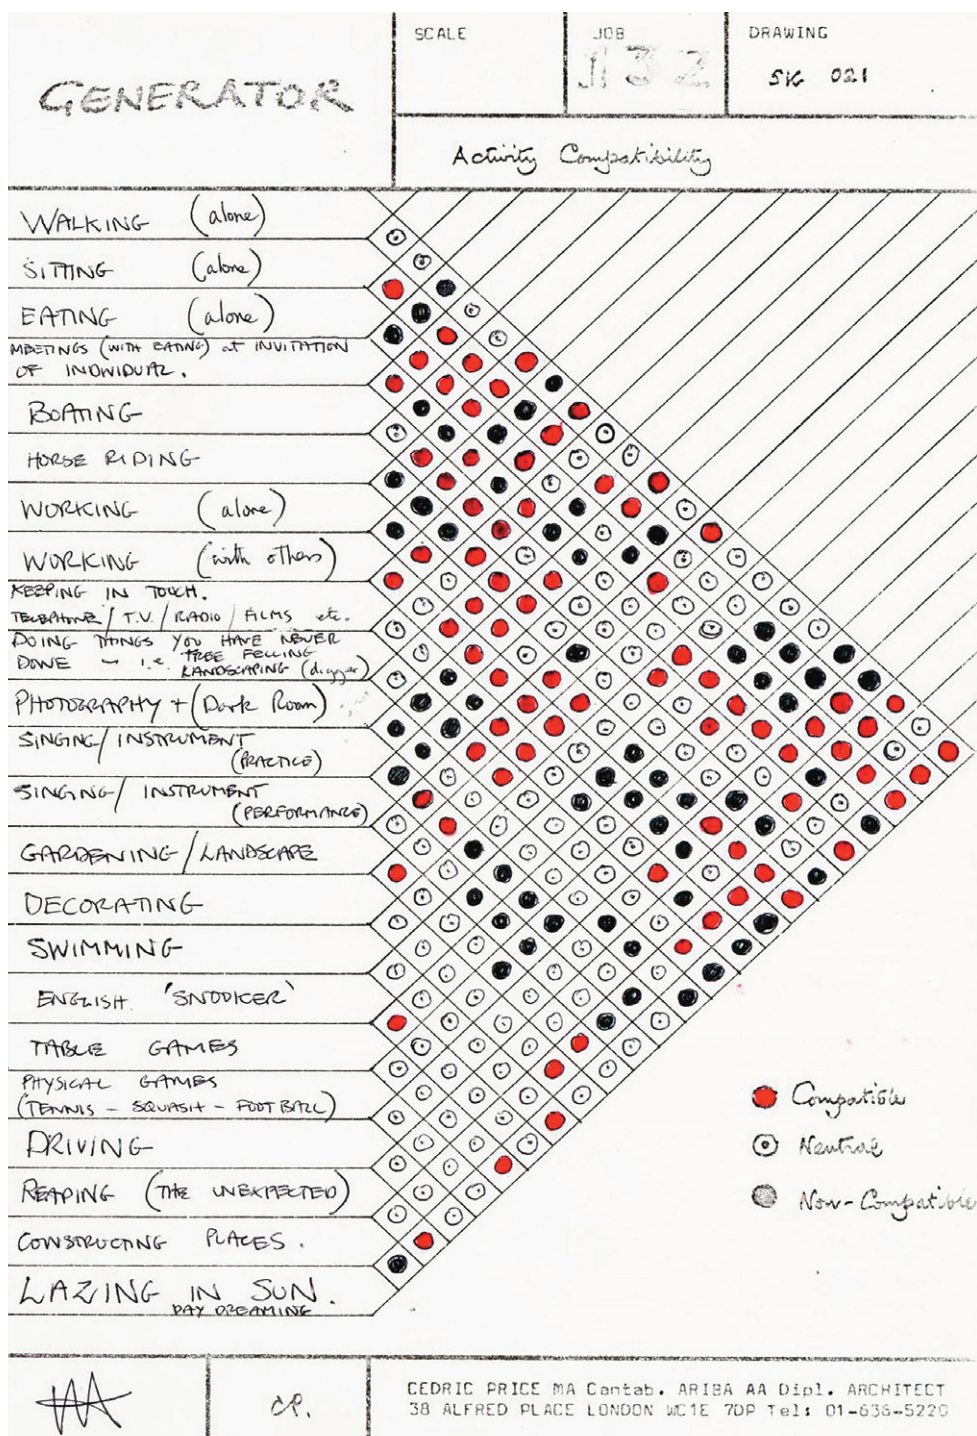 SCALE
JOB
132
DRAWING
SK 021
GENERATOR
Activity Compatibility
WALKING (alone)
SITTING (alone)
EATING (alone)
MEETINGS (WITH EATING) at INVITATION
OF INDIVIDUAL.
BOATING
HORSE RIDING
WORKING (alone)
WORKING (with others)
KEEPING IN TOUCH.
TELEPHONE / T.V. / RADIO / FILMS etc.
DOING THINGS YOU HAVE NEVER
DONE - i.e. TREE FELLING
LANDSCAPING (digger)
PHOTOGRAPHY + (Dark Room)
SINGING / INSTRUMENT
(PRACTICE)
SINGING / INSTRUMENT
(PERFORMANCE)
GARDENING / LANDSCAPE
DECORATING
SWIMMING
ENGLISH.
TABLE GAMES
PHYSICAL GAMES
(TENNIS - SQUASH - FOOTBALL)
DRIVING
REAPING (THE UNEXPECTED)
CONSTRUCTING PLACES.
LAZING IN SUN.
DAY DREAMING
Compatible
Neutral
Non-Compatible
CP.
CEDRIC PRICE MA Cantab. ARIBA AA Dipl. ARCHITECT
38 ALFRED PLACE LONDON WC1E 7DP Tel: 01-636-5220